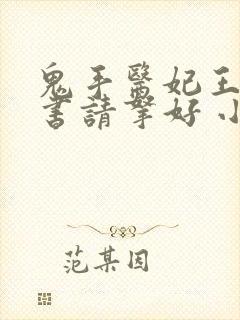 鬼手醫妃王
書請拏好小
范某因